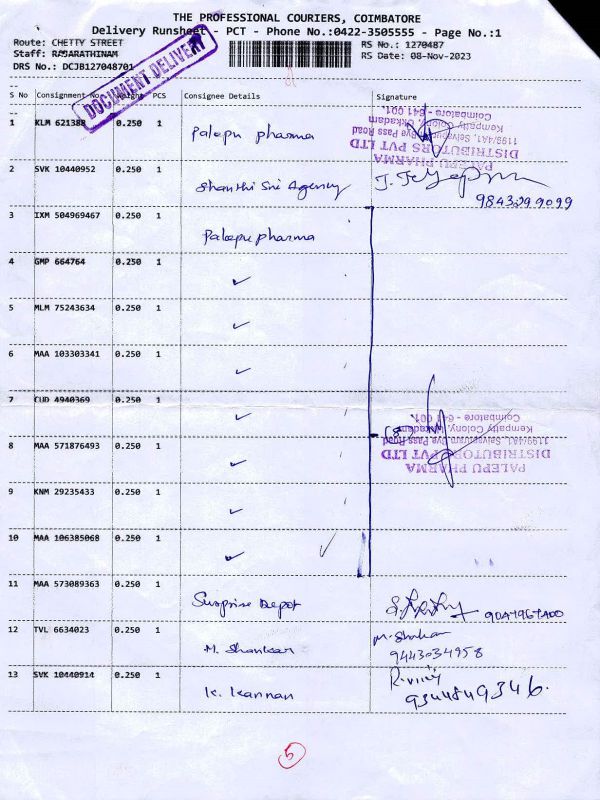 THE PROFESSIONAL COURIERS, COIMBATORE
Delivery Runsheet - PCT - Phone No.:0422-3505555 - Page No.:1
Route: CHETTY STREET
RS No.: 1270487
Staff: RAJARATHINAM
RS Date: 08-Nov-2023
DRS No.: DCJB127048701
DOCUMENT DELIVERY
S No Consignment No Weight PCS Consignee Details Signature
1 KLM 621388 0.250 1 Palepu pharma
PALEPU PHARMA
DISTRIBUTORS PVT LTD
1199/4A1, Selvapuram Bye Pass Road
Kempatty Colony, Ukkadam,
Coimbatore - 641 001.
2 SVK 10440952 0.250 1 Shanthi Sri Agency
9843299099
3 IXM 504969467 0.250 1 Palepu pharma
4 GMP 664764 0.250 1 ✓
5 MLM 75243634 0.250 1 ✓
6 MAA 103303341 0.250 1 ✓
7 CUD 4940369 0.250 1 ✓
(8)
PALEPU PHARMA
DISTRIBUTORS PVT LTD
1199/4A1, Selvapuram Bye Pass Road
Kempatty Colony, Ukkadam,
Coimbatore - 641 001.
8 MAA 571876493 0.250 1 ✓
9 KNM 29235433 0.250 1 ✓
10 MAA 106385068 0.250 1 ✓ ✓
11 MAA 573089363 0.250 1 Surprise Depot
12 TVL 6634023 0.250 1 M. Shankar
9443034958
13 SVK 10440914 0.250 1 K. Kannan
9344849346.
5